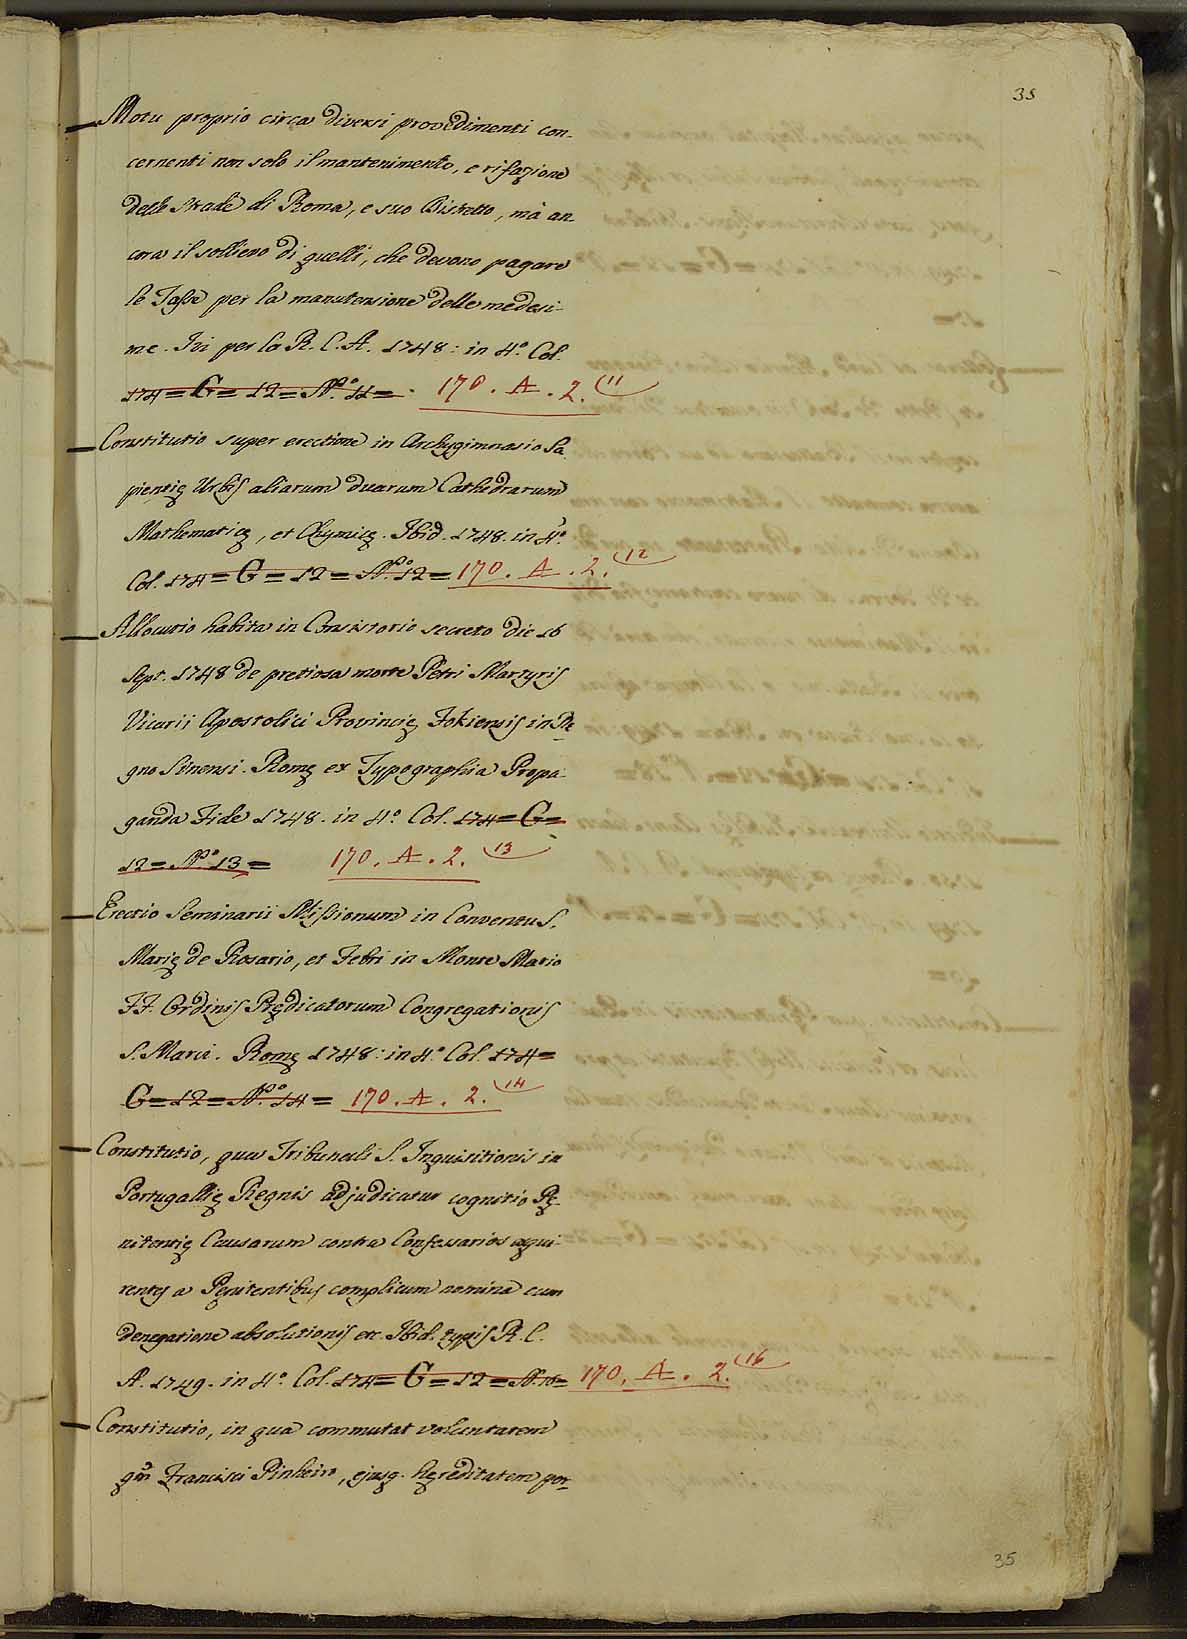 35
Motu proprio circa diversi provedimenti con-
cernenti non solo il mantenimento, e rifazione
delle strade di Roma, e suo Distretto, mà an-
cora il sollievo di quelli, che devono pagare
le Tasse per la manutensione delle medesi-
me. Ivi per la R. C. A. 1748: in 4.º Col.
174 = G = 12 = Nº. 11 = 170. A. 2. (11
Constitutio super erectione in Archygimnasio Sa-
pientię Urbis aliarum duarum Cathedrarum
Mathematicę, et Chymicę. Ibid. 1748. in 4.º
Col. 174 = G = 12 = Nº. 12 = 170. A. 2. (12
Allocutio habita in Consistorio secreto die 16
Sept. 1748 de pretiosa morte Petri Martyris
Vicarii Apostolici Provincię Fokiensis in Re-
gno Sinensi. Romę ex Typographia Propa-
ganda Fide 1748. in 4.º Col. 174 = G =
12 = Nº 13 = 170. A. 2. (13
Erectio Seminarii Missionum in Conventu S.
Marię de Rosario, et Febri in Monte Mario
FF. Ordinis Prędicatorum Congregationis
S. Marci. Romę 1748: in 4.º Col. 174 =
G = 12 = Nº. 14 = 170. A. 2. (14
Constitutio, qua Tribunali S. Inquisitionis in
Portugallię Regnis adjudicatur cognitio Pę-
nitentię Causarum contra Confessarios exqui-
rentes a Pęnitentibus complicum nomina cum
denegatione absolutionis etc. Ibid. typis R. C.
A. 1749. in 4.º Col. 174 = G = 12 = Nº. 16 = 170. A. 2. (16
Constitutio, in qua commutat voluntatem
qm̃ Francisci Pinheiro, ejusq. hęreditatem por-
35